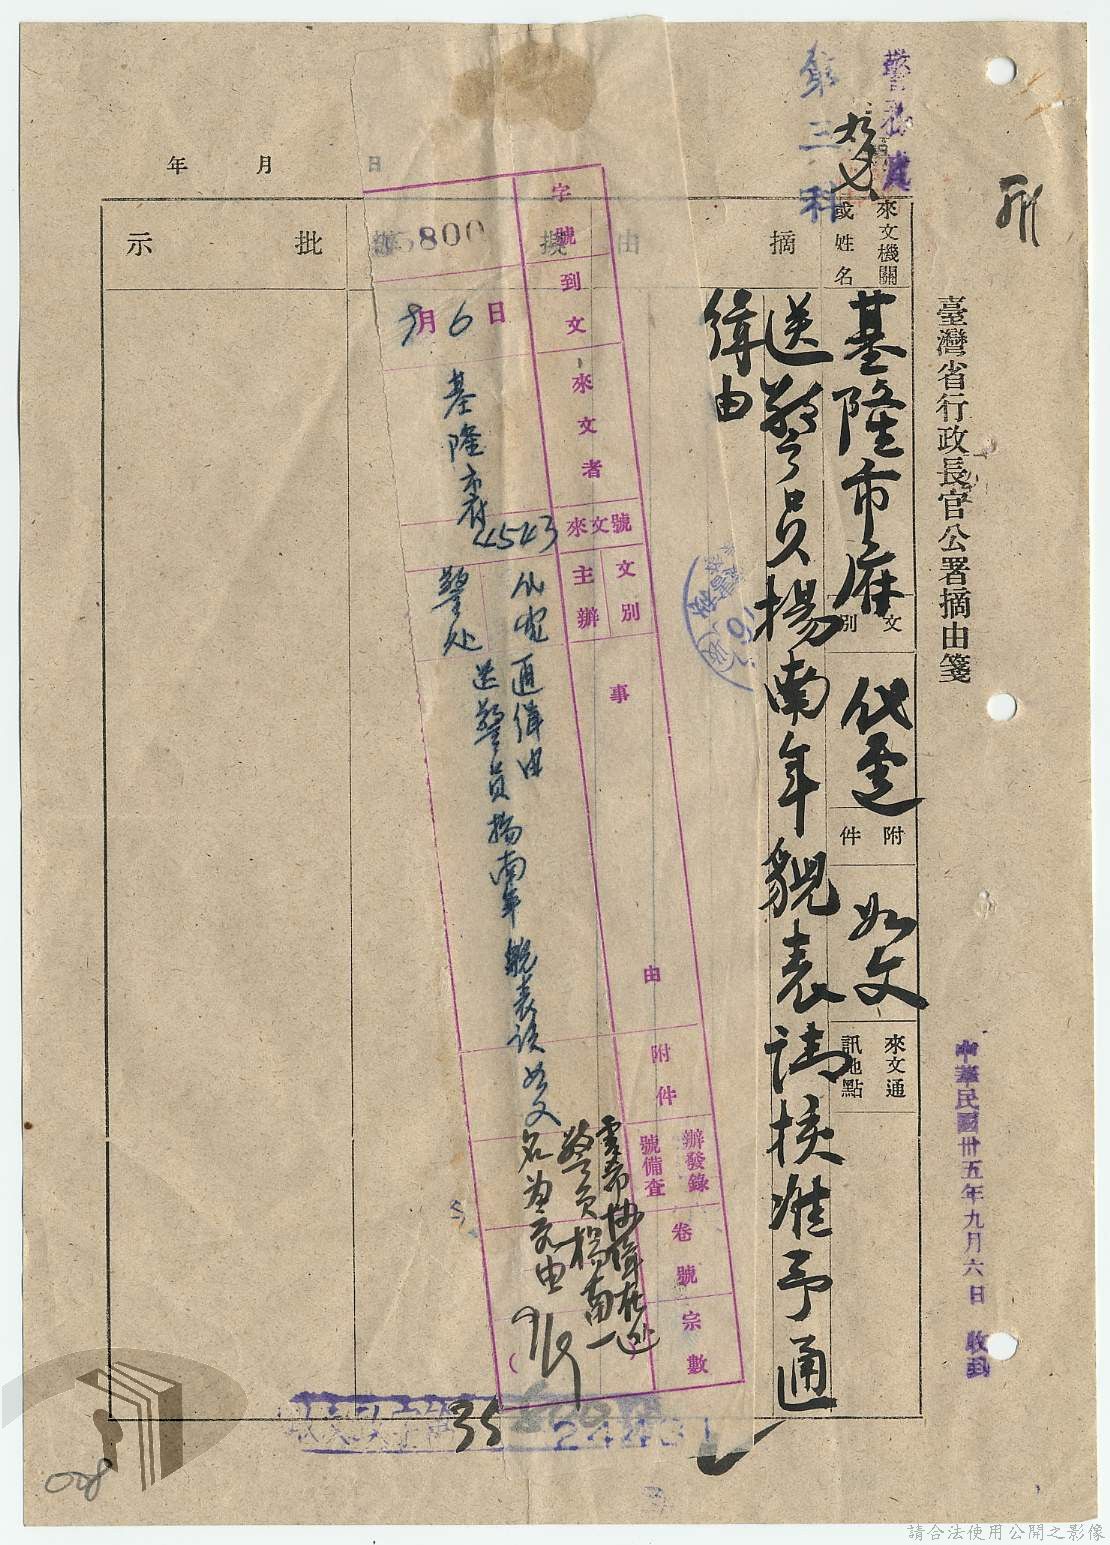 刑
臺灣省行政長官公署摘由箋
中華民國卅五年九月六日 收到
警務處
第三科
來文機關或姓名
基隆市府
文別
代電
附件
如文
來文通訊地點
摘由
送警員楊南年貌表請核准予通
緝由
擬辦
批示
年 月 日
字號
5800
到文
9月6日
來文者
基隆市府
來文號
4543
文別
主辦
警处
事由
送警員楊南年貌表請
通緝由
附件
如文
辦發錄號備查
卷號
宗數
電希协緝在逃
警員楊南一
名為荷由
9/9
收文
35
24431
008
請合法使用公開之影像